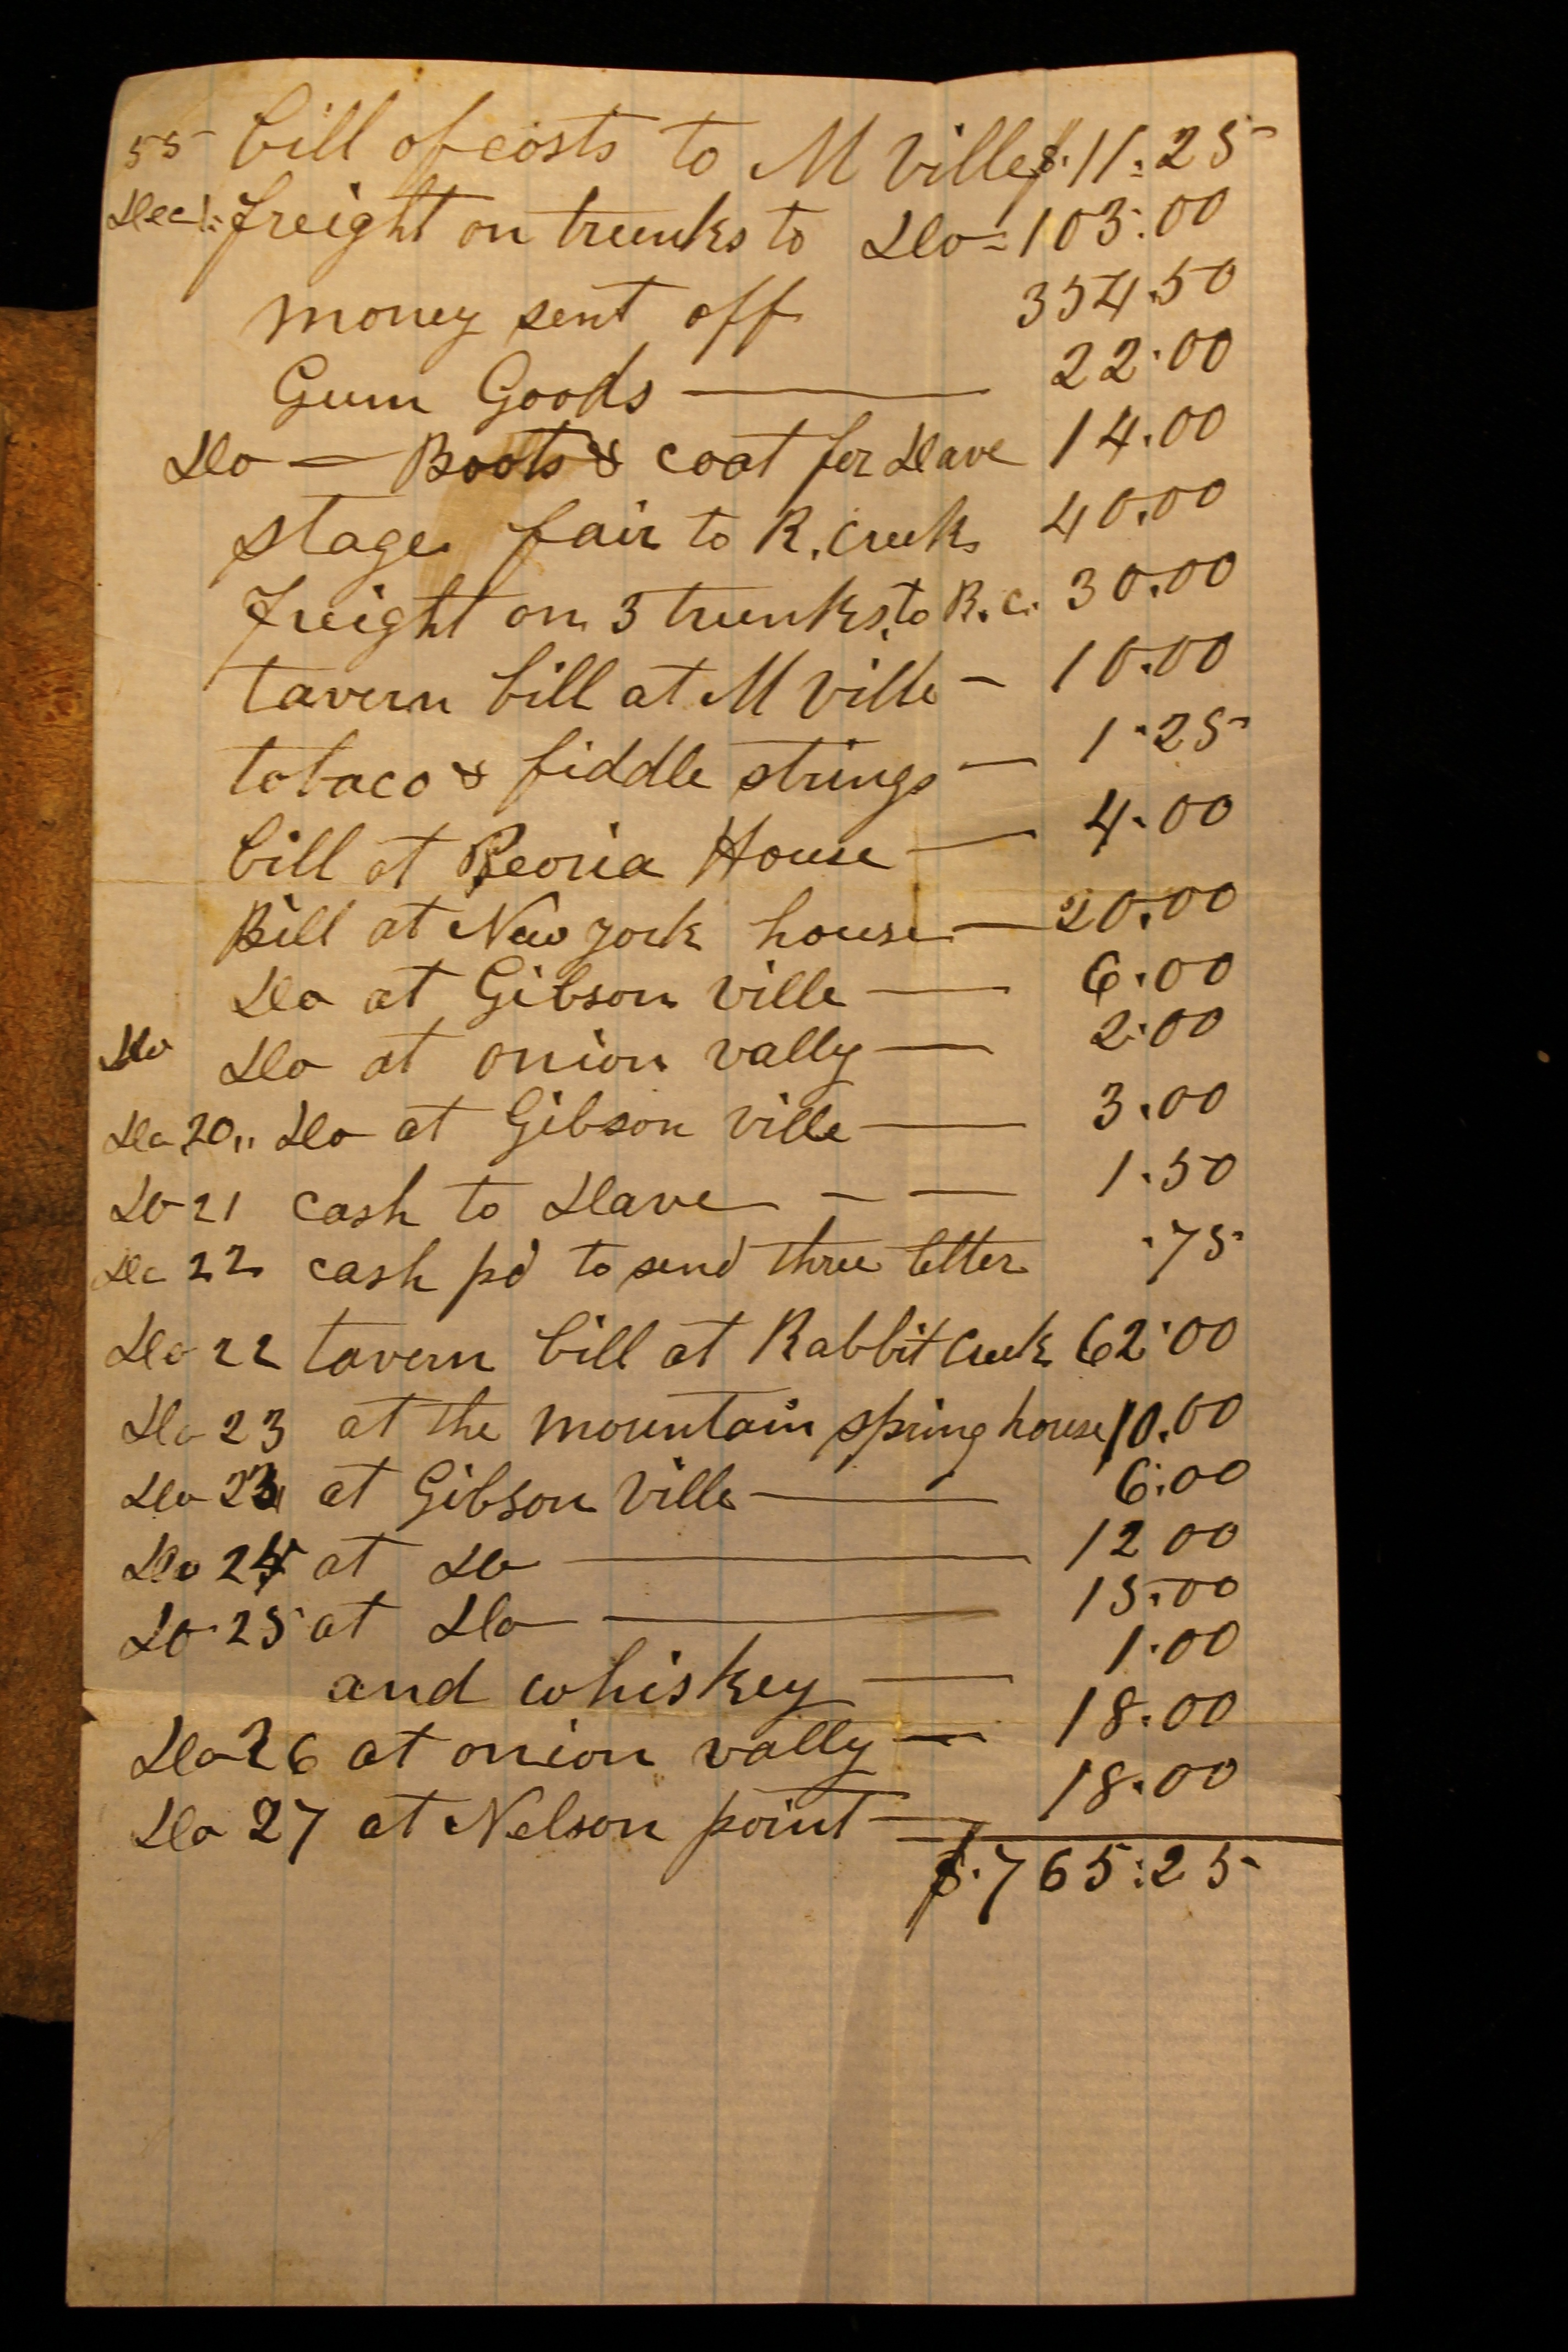 55 bill of costs to M Ville $.11.25
Dec 1: freight on trunks to Do = 103.00
money sent off 354.50
Gum Goods — 22.00
Do — Boots & coat for Dave 14.00
stage fair to R. Creek 40.00
freight on 3 trunks to R. C. 30.00
tavern bill at M Ville — 10.00
tobaco & fiddle strings — 1.25
bill at Peoria House — 4.00
Bill at New york house — 20.00
Do at Gibson ville — 6.00
Do Do at onion vally — 2.00
Do 20,, Do at Gibson ville — 3.00
Do 21 cash to Dave — — 1.50
Do 22 cash pd to send three letter .75
Do 22 tavern bill at Rabbit Creek 62.00
Do 23 at the mountain spring house 10.00
Do 23 at Gibson Ville — 6.00
Do 24 at Do — 12 00
Do 25 at Do — 15.00
and whiskey — 1.00
Do 26 at onion vally — 18.00
Do 27 at Nelson point — 18.00
$.765:25